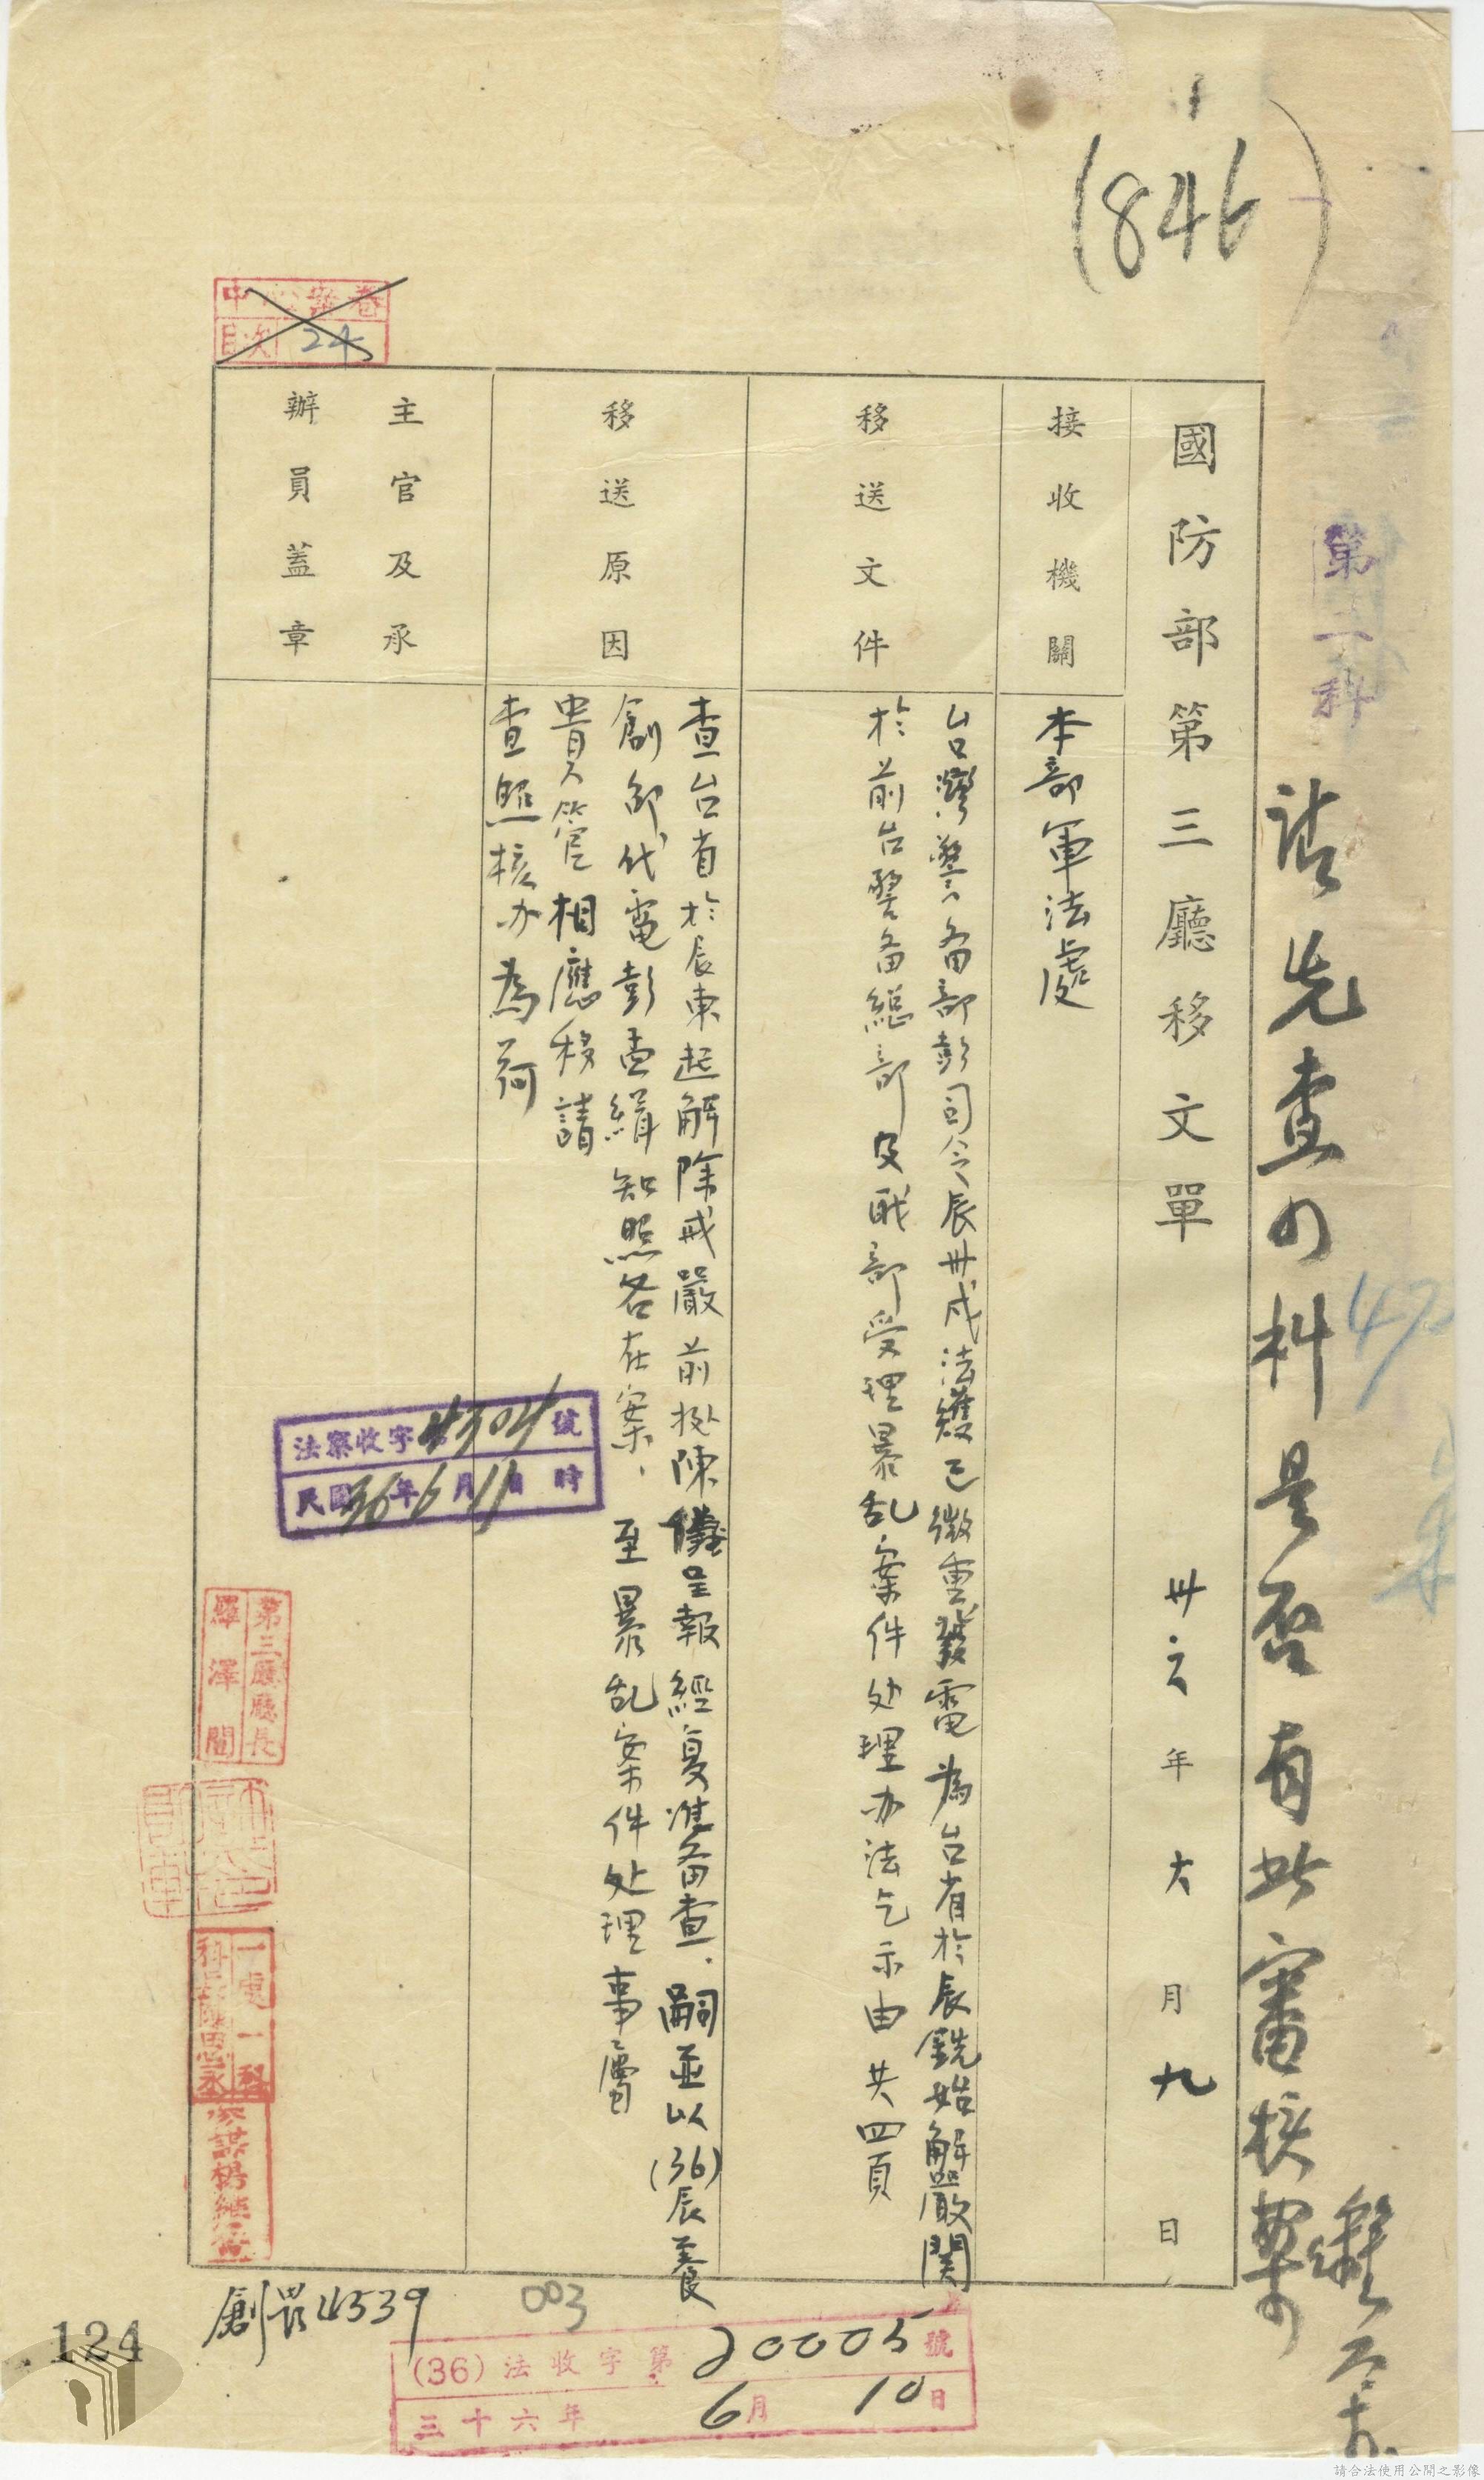 (846)
第一科
請先查四科是否有此審核案
國防部第三廳移文單
卅六年六月九日
接收機關
本部軍法處
移送文件
台灣警备部彭司令辰卅戍法
電為台省於辰銑始解嚴関
於前台警备總部及戰部受理暴乱案件处理办法乞示由 共四頁
移送原因
查台省於辰東起解除戒嚴前據陳儀呈報經复準备查.嗣並以(36)辰養
創邱代電彭孟緝知照各在案.至暴乱案件处理事屬
貴管相應移請
查照核办為荷
主官及承
辦員蓋章
中心案卷
目次 24
法察收字 4304 號
民國36年6月11日 時
第三廳廳長
羅澤闓
一處一科
003
(36)法收字第20005號
三十六年6月10日
124
請合法使用公開之影像